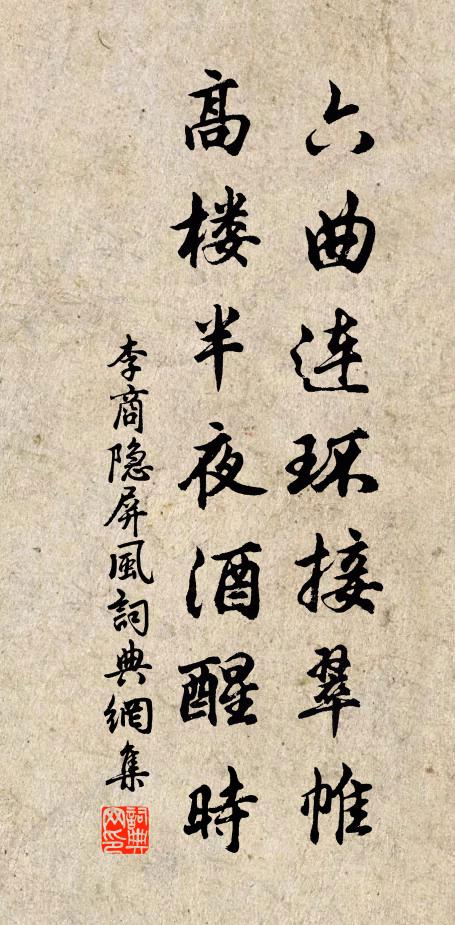 六曲连环接翠帷
高楼半夜酒醒时
李商隐屏風詞典網集
詞典网印